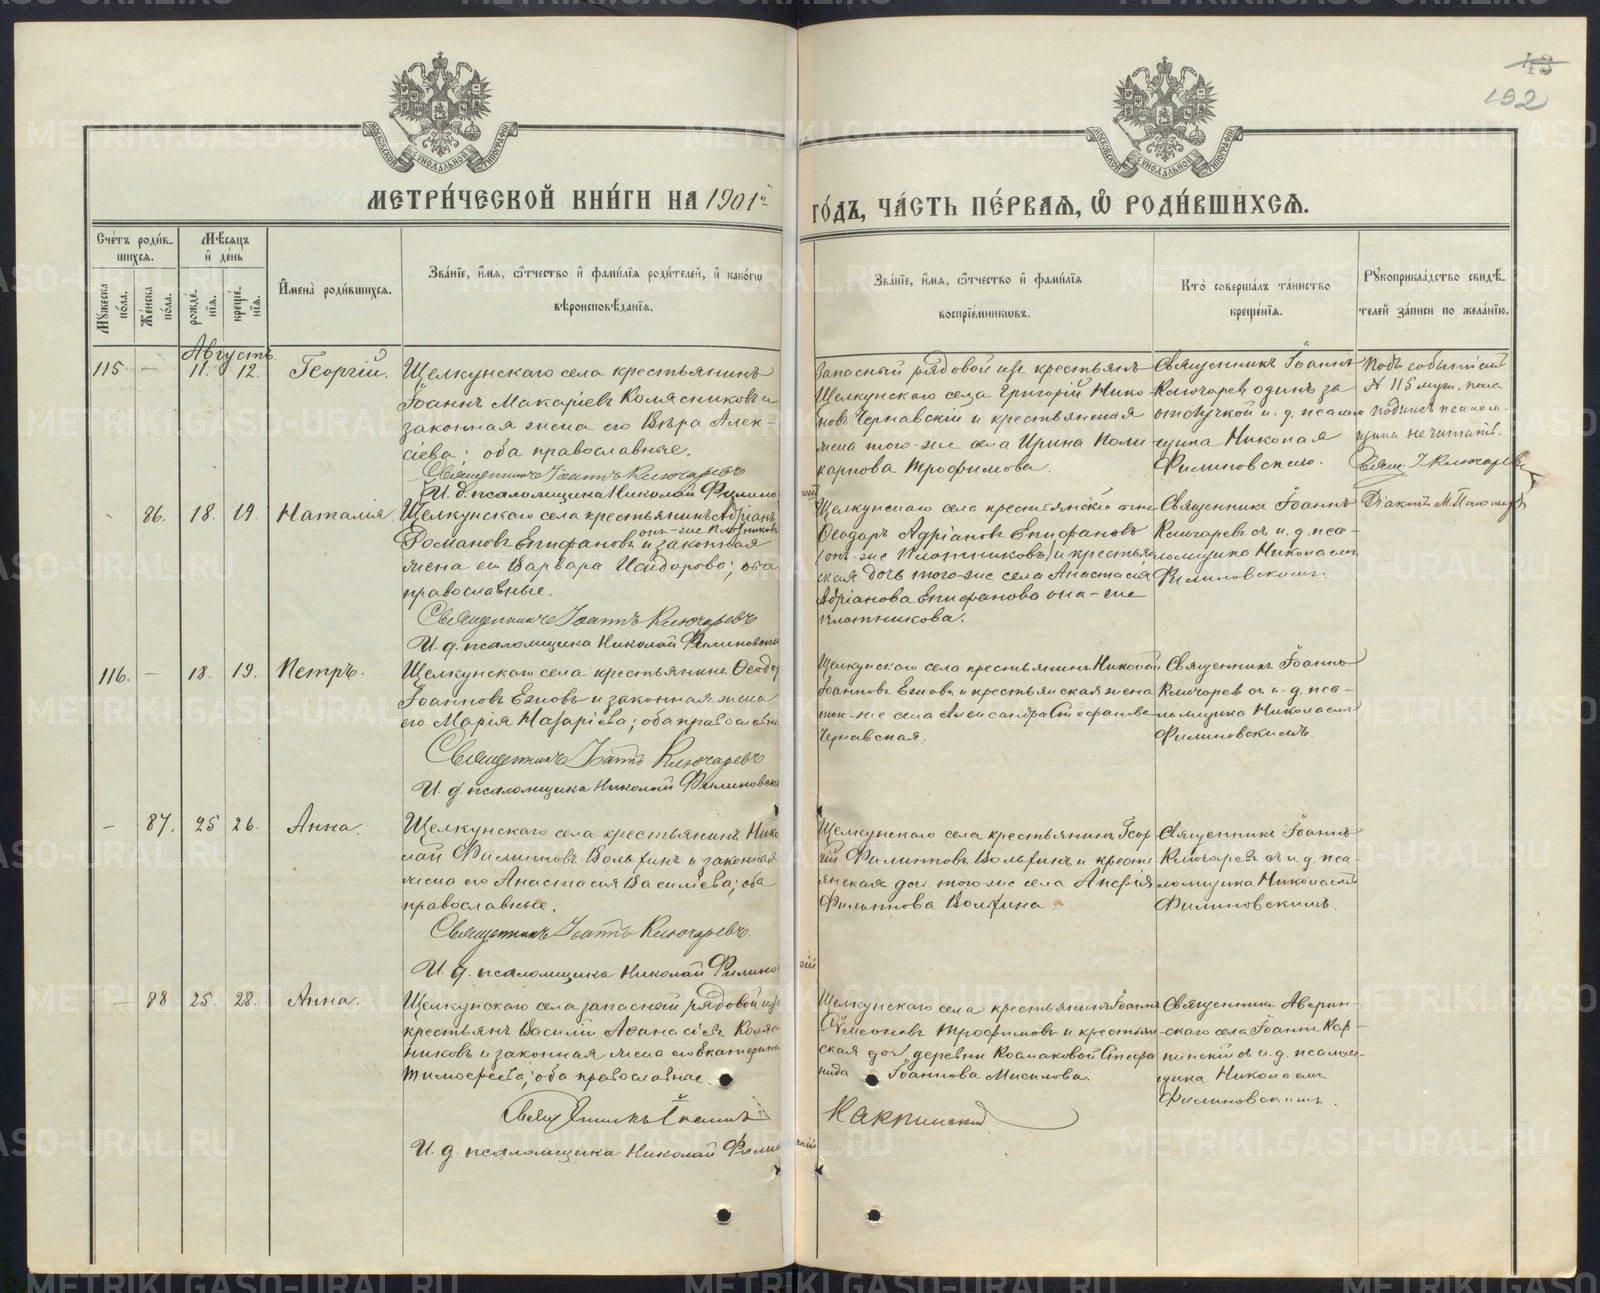 43
192
МЕТРИ́ЧЕСКОЙ КНИ́ГИ НА 1901й
ГО́ДЪ, ЧА́СТЬ ПЕ́РВАЯ, Ѡ РОДИ́ВШИХСЯ.
Сче́тъ роди́в-
шихся.
Мѣсяцъ
и де́нь
Му́жеска по́ла.
Же́нска по́ла.
рожде́-
нїѧ.
креще́-
нїѧ.
Имена̀ роди́вшихся.
Зва́нїе, и́мѧ, ѻ҆́тчество и фами́лїѧ роди́телей, и како́гѡ
вѣроисповѣ́данїѧ.
Зва́нїе, и́мѧ, ѻ҆́тчество и фами́лїѧ
воспрїе́мникѡвъ.
Кто̀ соверша́лъ та́инство
креще́нїѧ.
Рꙋкоприкла́дство свидѣ́-
телей за́писи по жела́нїю.
Августъ
115 — 11. 12. Георгій.
Щелкунскаго села крестьянинъ
Іоаннъ Макаріевъ Колясниковъ и
законная жена его Вѣра Алек-
сіева; оба православные.
Священникъ Іоаннъ Ключаревъ
И. д. псаломщика Николай Филино
Запасный рядовой изъ крестьянъ
Щелкунскаго села Григорій Нико-
новъ Чернавскій и крестьянская
жена того-же села Ирина Поли-
карпова Трофимова.
Священникъ Іоаннъ
Ключаревъ одинъ за
отлучкой и. д. псалом
щика Николая
Филиновскаго.
Подъ событіемъ
№ 115 муж. пола
подпись псалом-
щика не читать.
Свящ. І. Ключаревъ
86. 18. 19. Наталія
Щелкунскаго села крестьянинъ Адріанъ
Романовъ Епифановъ онъ-же Плотниковъ и законная
жена его Варвара Исидорова; оба
православные.
Священникъ Іоаннъ Ключаревъ
И. д. псаломщика Николай Филиновскій
Щелкунскаго села крестьянскій сынъ
Ѳеодоръ Адріановъ Епифановъ
(онъ-же Плотниковъ) и крестьян
ская дочь того-же села Анастасія
Адріанова Епифанова она-же
Плотникова.
Священникъ Іоаннъ
Ключаревъ съ и. д. пса-
ломщика Николаемъ
Филиновскимъ.
Діаконъ М.
116. — 18. 19. Петръ.
Щелкунскаго села крестьянинъ Ѳеодоръ
Іоанновъ Ежовъ и законная жена
его Марія Назаріева; оба православн
Священникъ Іоаннъ Ключаревъ
И. д. псаломщика Николай Филиновскі
Щелкунскаго села крестьянинъ Николай
Іоанновъ Ежовъ и крестьянская жена
того-же села Александра Стефанова
Чернавская.
Священникъ Іоаннъ
Ключаревъ съ и. д. пса-
ломщика Николаемъ
Филиновскимъ.
— 87. 25 26. Анна.
Щелкунскаго села крестьянинъ Нико
лай Филипповъ Вольхинъ и законная
жена его Анастасія Васильева; оба
православные.
Священникъ Іоаннъ Ключаревъ.
И. д. псаломщика Николай Филино
Щелкунскаго села крестьянинъ Геор
гій Филипповъ Вольхинъ и кресть
янская доч. того-же села Анфія
Филиппова Вольхина.
Священникъ Іоаннъ
Ключаревъ съ и. д. пса-
ломщика Николаемъ
Филиновскимъ.
— 88 25. 28. Анна.
Щелкунскаго села запасный рядовой изъ
крестьянъ Василій Аѳанасіевъ Коляс
никовъ и законная жена его Екатерина
Тимоѳеева; оба православные
Священникъ Іоаннъ
И. д. псаломщика Николай Филин
Щелкунскаго села крестьянинъ Іоаннъ
Сѵмеоновъ Трофимовъ и крестьян-
ская доч. деревни Космаковой Стефа
нида Іоаннова Мисилова.
Карпинскій
Священникъ Аверин-
скаго села Іоаннъ Кар-
пинскій съ и. д. псалом-
щика Николаемъ
Филиновскимъ.